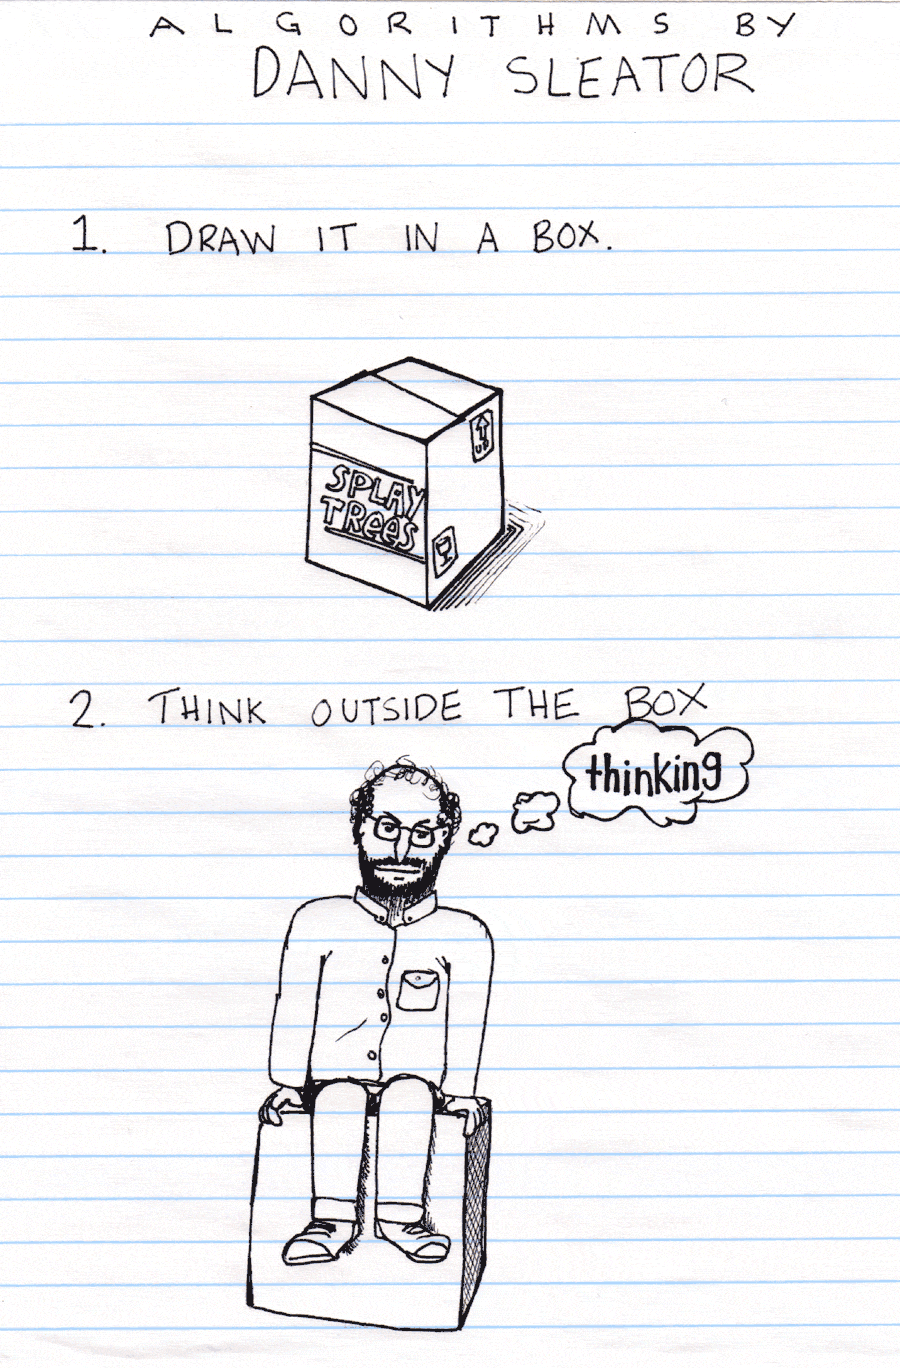 ALGORITHMS BY
DANNY SLEATOR
1. DRAW IT IN A BOX.
UP
SPLAY
TREES
2. THINK OUTSIDE THE BOX
thinking